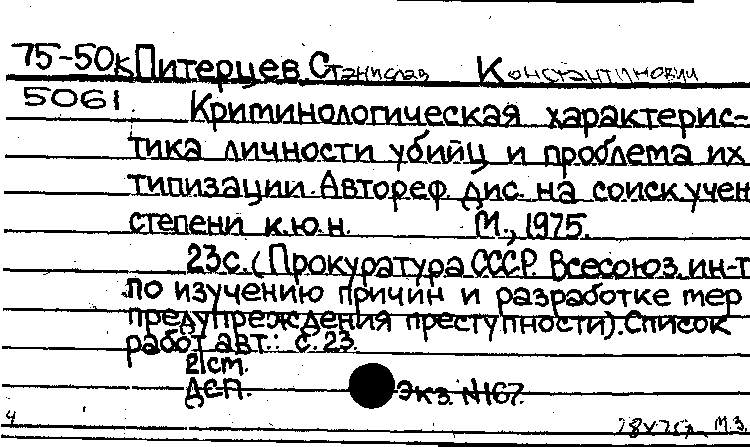 75-50к Питерцев Станислав Константинович
5061
Криминологическая характерис-
тика личности убийц и проблема их
типизации. Автореф. дис. на соиск. учен
степени к.ю.н. М., 1975.
23с. (Прокуратура СССР. Всесоюз. ин-т
по изучению причин и разработке мер
предупреждения преступности). Список
работ авт.: с. 23.
21см.
Деп. Экз. №167.
4 М.З.